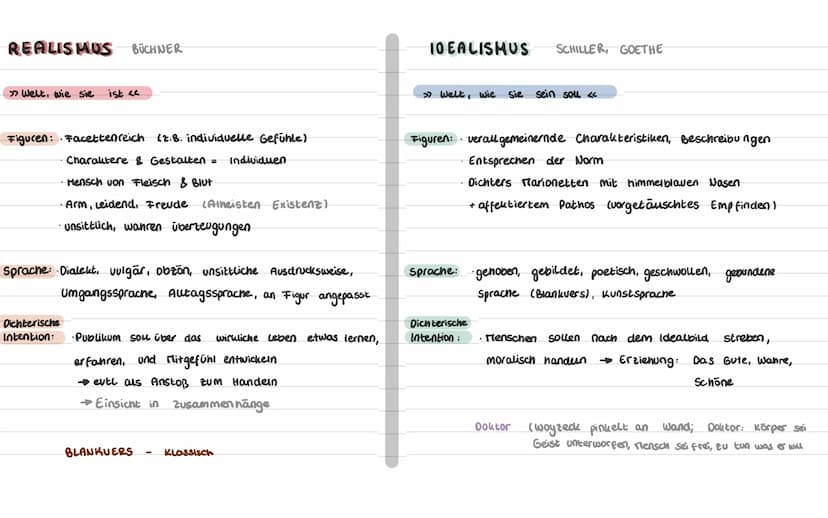 REALISMUS BÜCHNER
>> Welt, wie sie ist <<
Figuren: · Facettenreich (z.B. individuelle Gefühle)
· Charaktere & Gestalten = Individuen
· Mensch von Fleisch & Blut
· Arm, Leidend, Freude (Atheisten Existenz)
· unsittlich, wahren Überzeugungen
Sprache: · Dialekt, vulgär, obzön, unsittliche Ausdrucksweise,
Umgangssprache, Alltagssprache, an Figur angepasst
Dichterische
Intention: · Publikum soll über das wirkliche Leben etwas lernen,
erfahren, und Mitgefühl entwickeln
→ evtl als Anstoß zum Handeln
→ Einsicht in Zusammenhänge
BLANKVERS - Klassisch
IDEALISMUS SCHILLER, GOETHE
>> Welt, wie sie sein soll <<
Figuren: · verallgemeinernde Charakteristiken, Beschreibungen
· Entsprechen der Norm
· Dichters Marionetten mit himmelblauen Nasen
+ affektiertem Pathos (vorgetäuschtes Empfinden)
Sprache: · gehoben, gebildet, poetisch, geschwollen, gebundene
Sprache (Blankvers), Kunstsprache
Dichterische
Intention: · Menschen sollen nach dem Idealbild streben,
moralisch handeln → Erziehung: Das Gute, Wahre,
Schöne
Doktor (Woyzeck pinkelt an Wand; Doktor: Körper sei
Geist unterworfen, Mensch sei frei, zu tun was er will